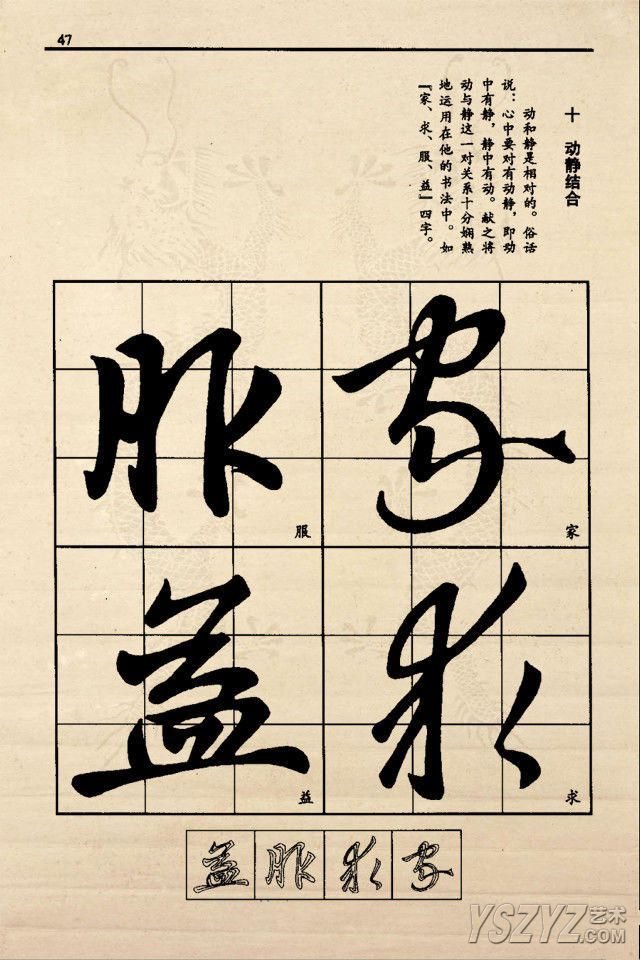 47
十 动静结合
动和静是相对的。俗话
说：心中要对有动静，即动
中有静，静中有动。献之将
动与静这一对关系十分娴熟
地运用在他的书法中。如
『家、求、服、益』四字。
家
家
求
求
服
服
益
益
益服求家
YSZYZ艺术
.COM